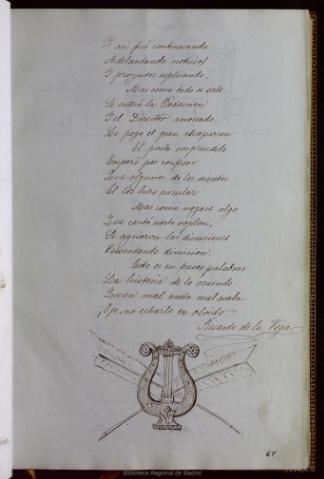 Y asi fué continuando
Adelantando noticias
Y proyectos esplicando,
Mas como todo se sabe
Se enteró la Redaccion
Y el Director amoscado
Le pegó el gran chaparron
El poeta sorprendido
Empezó por confesar
Que algunos de los secretos
El los hizo circular
Mas como negase algo
Que contó cierto soplon,
Se agriaron las discusiones
Presentando dimision.
Esto es en breves palabras
La historia de lo ocurrido
Quien mal anda mal acaba
¡Ojo, no echarlo en olvido.
Ricardo de la Vega
68
Biblioteca Regional de Madrid